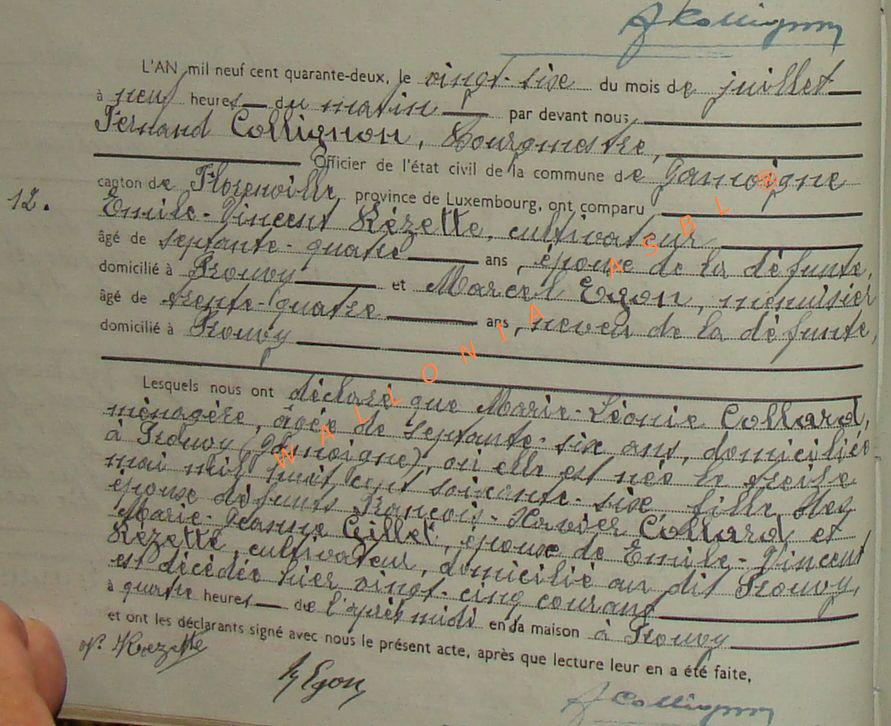 F Collignon
L'AN mil neuf cent quarante-deux, le vingt-six du mois de juillet
à neuf heures du matin par devant nous
Fernand Collignon, Bourgmestre,
Officier de l'état civil de la commune de Jamoigne
canton de Florenville, province de Luxembourg, ont comparu
12. Emile-Vincent Rézette, cultivateur
âgé de septante-quatre ans, époux de la défunte,
domicilié à Prouvy et Marcel Egon, menuisier
âgé de trente-quatre ans, neveu de la défunte,
domicilié à Prouvy
Lesquels nous ont déclaré que Marie-Léonie Collard,
ménagère, âgée de septante-six ans, domiciliée
à Prouvy (Jamoigne), où elle est née le treize
mai mil huit cent soixante-six, fille des
époux défunts François-Xavier Collard et
Marie-Jeanne Gillet, épouse de Emile-Vincent
Rézette, cultivateur, domicilié au dit Prouvy,
est décédée hier vingt-cinq courant
à quatre heures de l'après midi en sa maison à Prouvy
et ont les déclarants signé avec nous le présent acte, après que lecture leur en a été faite,
Rezette
M Egon
F Collignon
WALLONIA ASBL ©